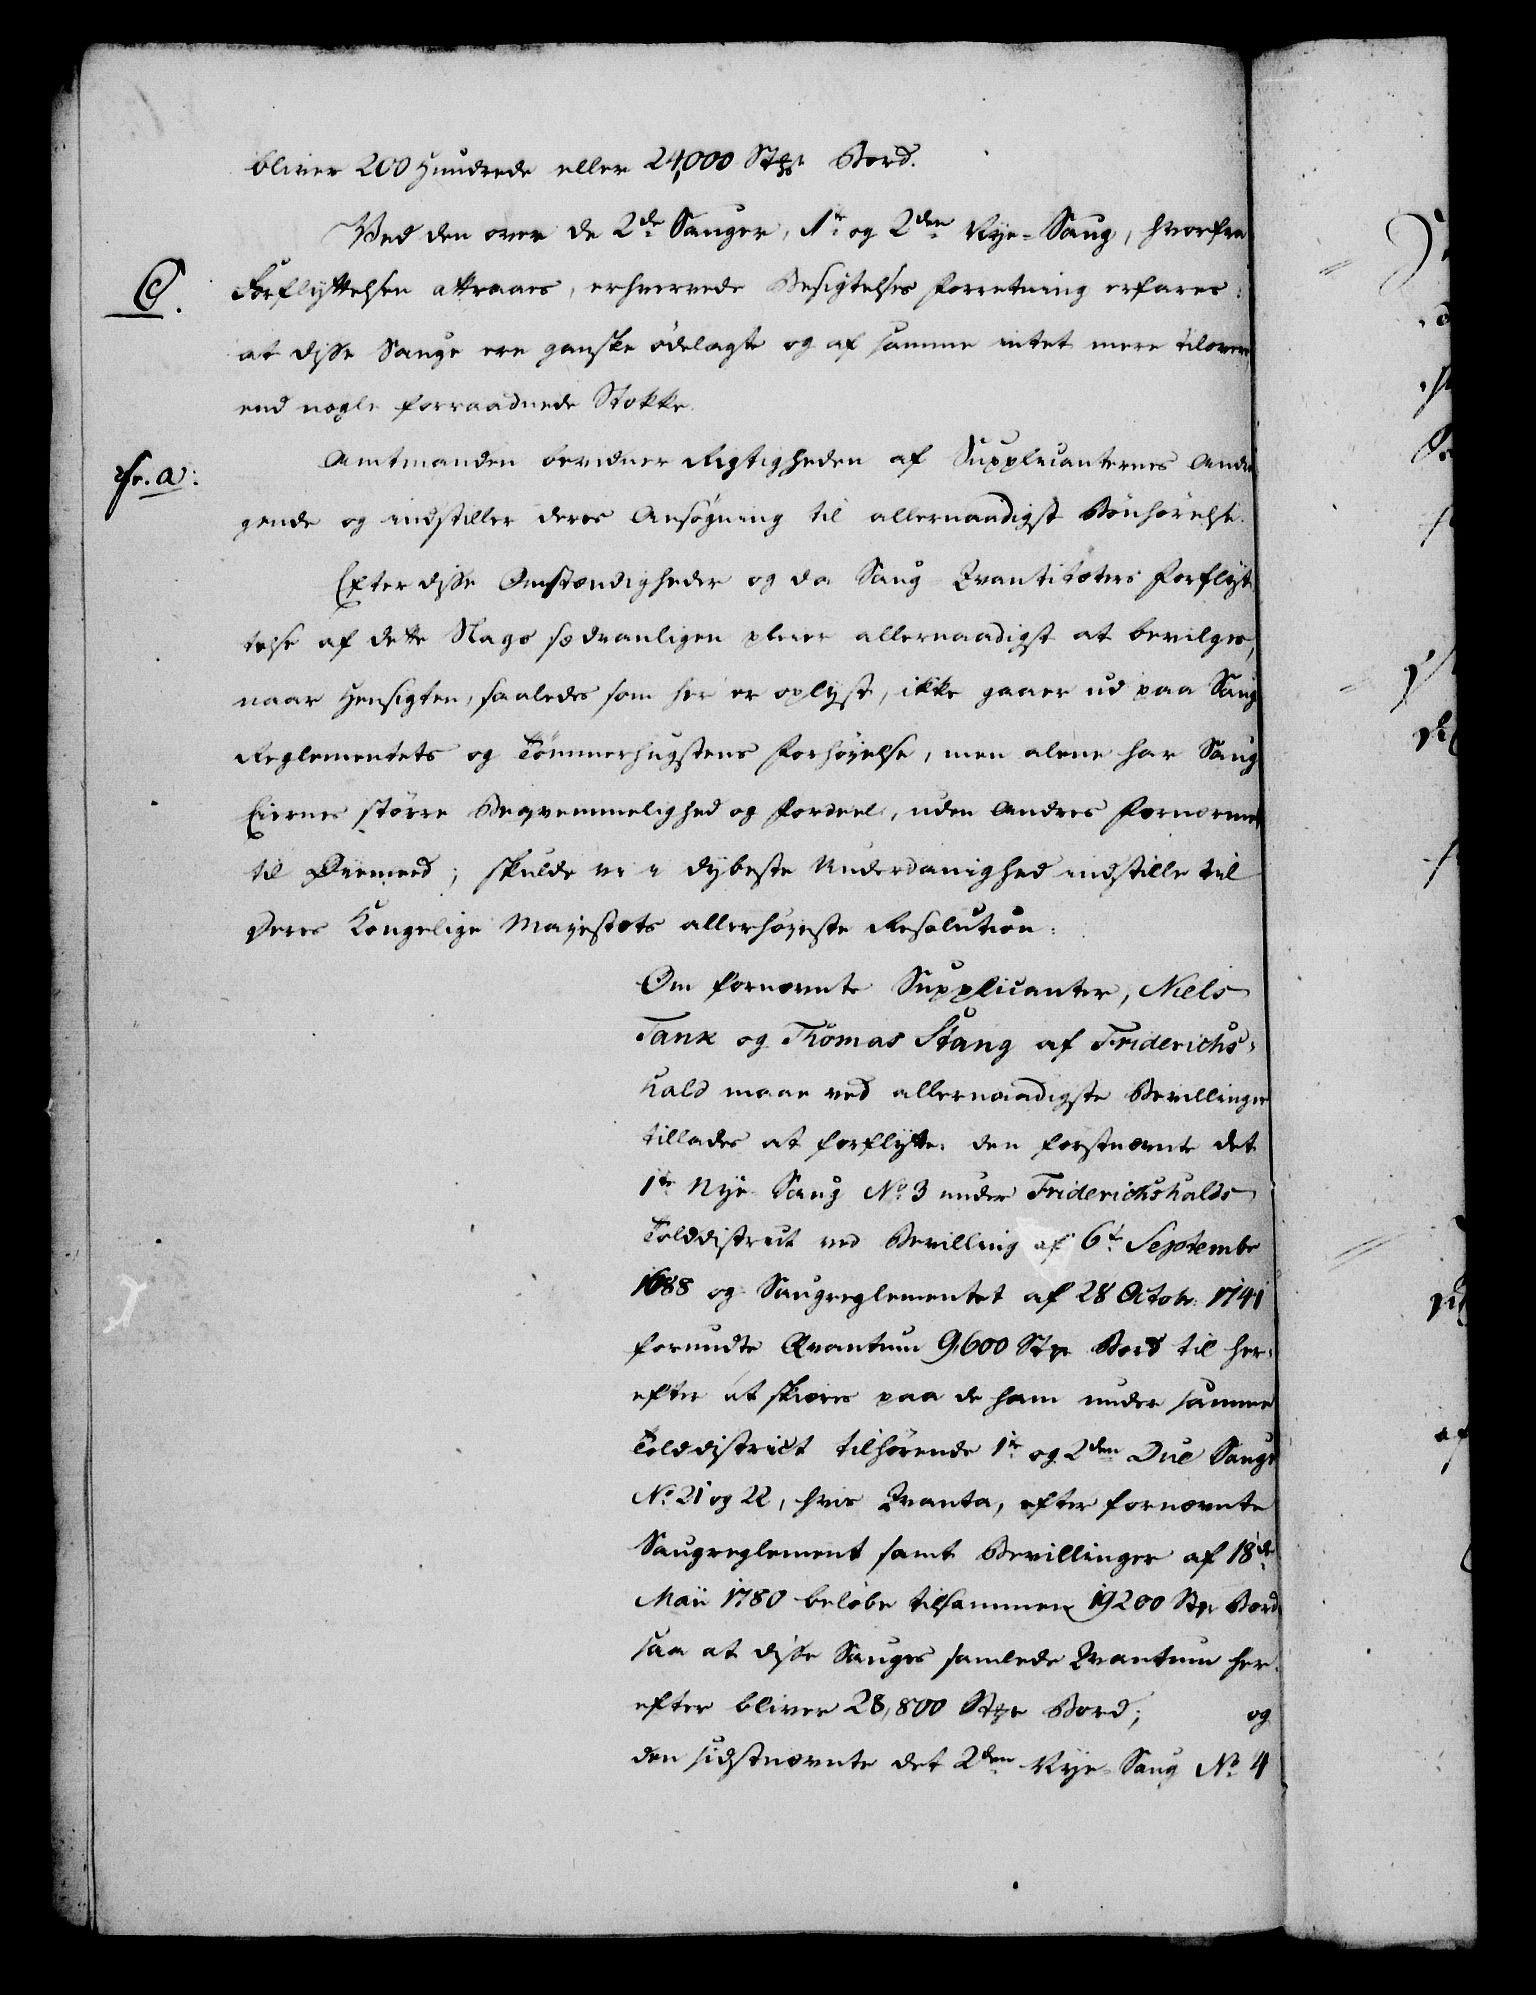 bliver 200 Hundrede eller 24,000 Stkr Bord.
Ved den over de 2de Sauger, 1te og 2den Nye-Saug, hvorfra
C.
Forflyttelsen attraaes, erhvervede Besigtelses Forretning erfares:
at disse Sauge ere ganske ødelagte og af samme intet mere tilovers
end nogle forraadnede Stokke.
Amtmanden bevidner Rigtigheden af Supplicanternes Andra
fr. a:
gende og indstiller deres Ansøgning til allernaadigst Bønhørelse.
Efter disse Omstændigheder og da Saug-Qvantiteters Forflyt
telse af dette Slags sædvanligen pleier allernaadigst at bevilges,
naar Hensigten, saaledes som her er oplyst, ikke gaaer ud paa Saug
Reglementets og Tømmerhugstens Forhøyelse, men alene har Saug
Eiernes større Beqvemmelighed og Fordeel, uden Andres Fornærmel
til Øiemeed; skulde vi i dybeste Underdanighed indstille til
Deres Kongelige Mayestæts allerhøyeste Resolution:
Om fornævnte Supplicanter, Niels
Tank og Thomas Stang af Friderichs-
hald maae ved allernaadigste Bevillinger
tillades at forflytte: den førstnævnte det
1te Nye Saug No 3 under Friderichshalds
Tolddistrict ved Bevilling af 6t Septembr
1688 og Saugreglementet af 28 Octobr. 1741
forundte Qvantum 9,600 Stkr Bord til her-
efter at skiæres paa de ham under samme
Tolddistrict tilhørende 1te og 2den Due Saug
No 21 og 22, hvis Qvanta, efter fornævnte
Saugreglement samt Bevillinger af 18de
Maii 1780 beløbe tilsammen 19200 Stkr Bord
saa at disse Sauges samlede Qvantum her-
efter bliver 28,800 Stkr Bord; og
den sidstnævnte det 2den Nye-Saug No 4